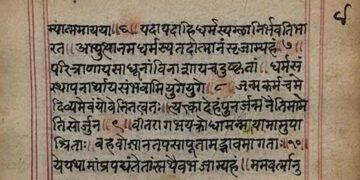 म्यात्ममायया ॥६॥ यदा यदा हि धर्मस्य ग्लानिर्भवति भा
रत । अभ्युत्थानमधर्मस्य तदात्मानं सृजाम्यहं ॥७॥
परित्राणाय साधूनां विनाशाय च दुष्कृतां । धर्मसं
स्थापनार्थाय संभवामि युगे युगे ॥८॥ जन्म कर्म च मे
दिव्यमेवं यो वेत्ति तत्वतः । त्यक्त्वा देहं पुनर्जन्म नैति मामे
ति सोर्जुन ॥९॥ वीतरागभयक्रोधा मन्मया मामुपा
श्रिताः । बहवो ज्ञानतपसा पूता मद्भावमागताः ॥१०॥
ये यथा मां प्रपद्यंते तांस्तथैव भजाम्यहं । मम वर्त्मानु